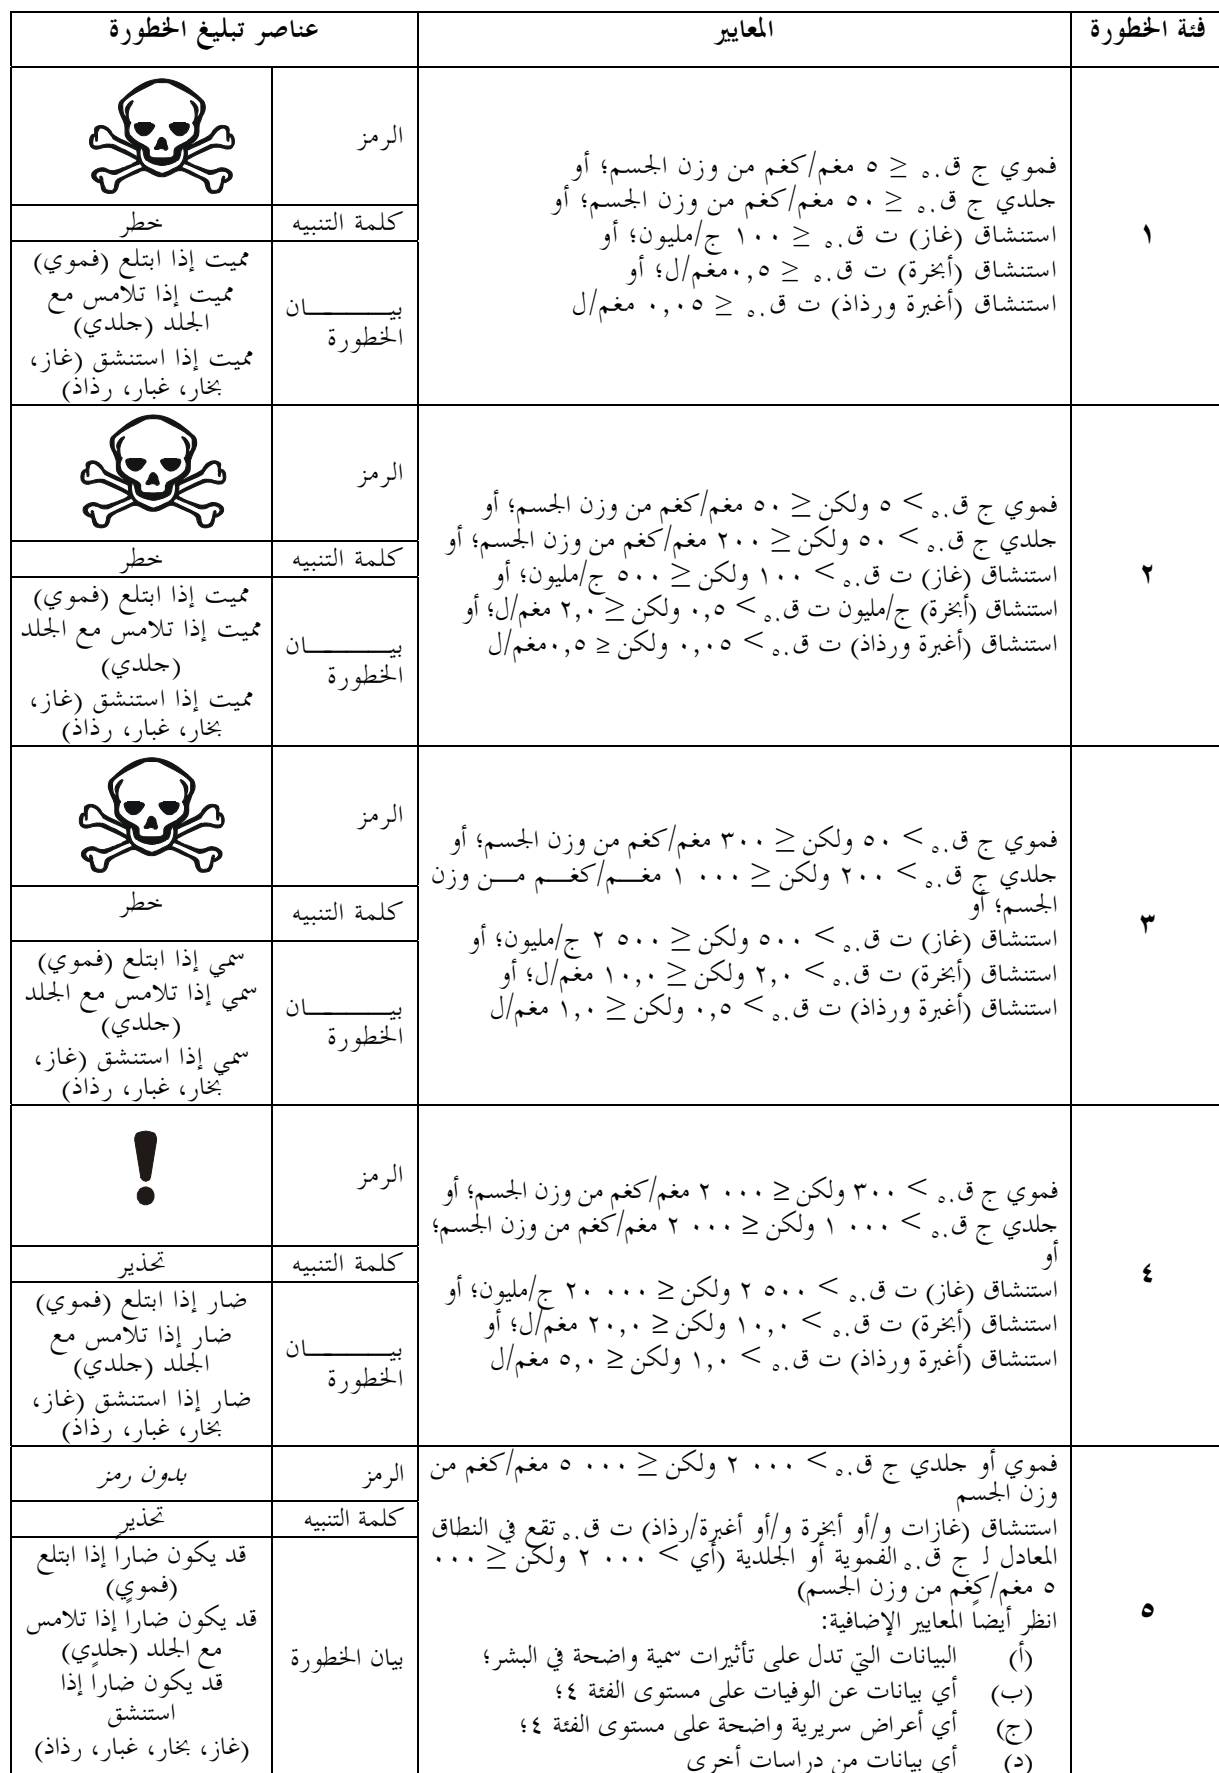 فئة الخطورة
المعايير
عناصر تبليغ الخطورة
١
فموي ج ق.٥ ≤ ٥ مغم/كغم من وزن الجسم؛ أو
جلدي ج ق.٥ ≤ ٥٠ مغم/كغم من وزن الجسم؛ أو
استنشاق (غاز) ت ق.٥ ≤ ١٠٠ ج/مليون؛ أو
استنشاق (أبخرة) ت ق.٥ ≤ ٠,٥مغم/ل؛ أو
استنشاق (أغبرة ورذاذ) ت ق.٥ ≤ ٠,٠٥ مغم/ل
الرمز
كلمة التنبيه
خطر
بيـــــــان
الخطورة
مميت إذا ابتلع (فموي)
مميت إذا تلامس مع
الجلد (جلدي)
مميت إذا استنشق (غاز،
بخار، غبار، رذاذ)
٢
فموي ج ق.٥ > ٥ ولكن ≤ ٥٠ مغم/كغم من وزن الجسم؛ أو
جلدي ج ق.٥ > ٥٠ ولكن ≤ ٢٠٠ مغم/كغم من وزن الجسم؛ أو
استنشاق (غاز) ت ق.٥ > ١٠٠ ولكن ≤ ٥٠٠ ج/مليون؛ أو
استنشاق (أبخرة) ج/مليون ت ق.٥ > ٠,٥ ولكن ≤ ٢,٠ مغم/ل؛ أو
استنشاق (أغبرة ورذاذ) ت ق.٥ > ٠,٠٥ ولكن ≤ ٠,٥مغم/ل
الرمز
كلمة التنبيه
خطر
بيـــــــان
الخطورة
مميت إذا ابتلع (فموي)
مميت إذا تلامس مع الجلد
(جلدي)
مميت إذا استنشق (غاز،
بخار، غبار، رذاذ)
٣
فموي ج ق.٥ > ٥٠ ولكن ≤ ٣٠٠ مغم/كغم من وزن الجسم؛ أو
جلدي ج ق.٥ > ٢٠٠ ولكن ≤ ٠٠٠ ١ مغـــم/كغـــم مـــن وزن
الجسم؛ أو
استنشاق (غاز) ت ق.٥ > ٥٠٠ ولكن ≤ ٥٠٠ ٢ ج/مليون؛ أو
استنشاق (أبخرة) ت ق.٥ > ٢,٠ ولكن ≤ ١٠,٠ مغم/ل؛ أو
استنشاق (أغبرة ورذاذ) ت ق.٥ > ٠,٥ ولكن ≤ ١,٠ مغم/ل
الرمز
كلمة التنبيه
خطر
بيـــــــان
الخطورة
سمي إذا ابتلع (فموي)
سمي إذا تلامس مع الجلد
(جلدي)
سمي إذا استنشق (غاز،
بخار، غبار، رذاذ)
٤
فموي ج ق.٥ > ٣٠٠ ولكن ≤ ٠٠٠ ٢ مغم/كغم من وزن الجسم؛ أو
جلدي ج ق.٥ > ٠٠٠ ١ ولكن ≤ ٠٠٠ ٢ مغم/كغم من وزن الجسم؛
أو
استنشاق (غاز) ت ق.٥ > ٥٠٠ ٢ ولكن ≤ ٠٠٠ ٢٠ ج/مليون؛ أو
استنشاق (أبخرة) ت ق.٥ > ١٠,٠ ولكن ≤ ٢٠,٠ مغم/ل؛ أو
استنشاق (أغبرة ورذاذ) ت ق.٥ > ١,٠ ولكن ≤ ٥,٠ مغم/ل
الرمز
كلمة التنبيه
تحذير
بيـــــــان
الخطورة
ضار إذا ابتلع (فموي)
ضار إذا تلامس مع
الجلد (جلدي)
ضار إذا استنشق (غاز،
بخار، غبار، رذاذ)
٥
فموي أو جلدي ج ق.٥ > ٠٠٠ ٢ ولكن ≤ ٠٠٠ ٥ مغم/كغم من
وزن الجسم
استنشاق (غازات و/أو أبخرة و/أو أغبرة/رذاذ) ت ق.٥ تقع في النطاق
المعادل لـ ج ق.٥ الفموية أو الجلدية (أي > ٠٠٠ ٢ ولكن ≤ ٠٠٠
٥ مغم/كغم من وزن الجسم)
انظر أيضاً المعايير الإضافية:
(أ) البيانات التي تدل على تأثيرات سمية واضحة في البشر؛
(ب) أي بيانات عن الوفيات على مستوى الفئة ٤؛
(ج) أي أعراض سريرية واضحة على مستوى الفئة ٤؛
(د) أي بيانات من دراسات أخرى
الرمز
بدون رمز
كلمة التنبيه
تحذير
بيان الخطورة
قد يكون ضاراً إذا ابتلع
(فموي)
قد يكون ضاراً إذا تلامس
مع الجلد (جلدي)
قد يكون ضاراً إذا
استنشق
(غاز، بخار، غبار، رذاذ)